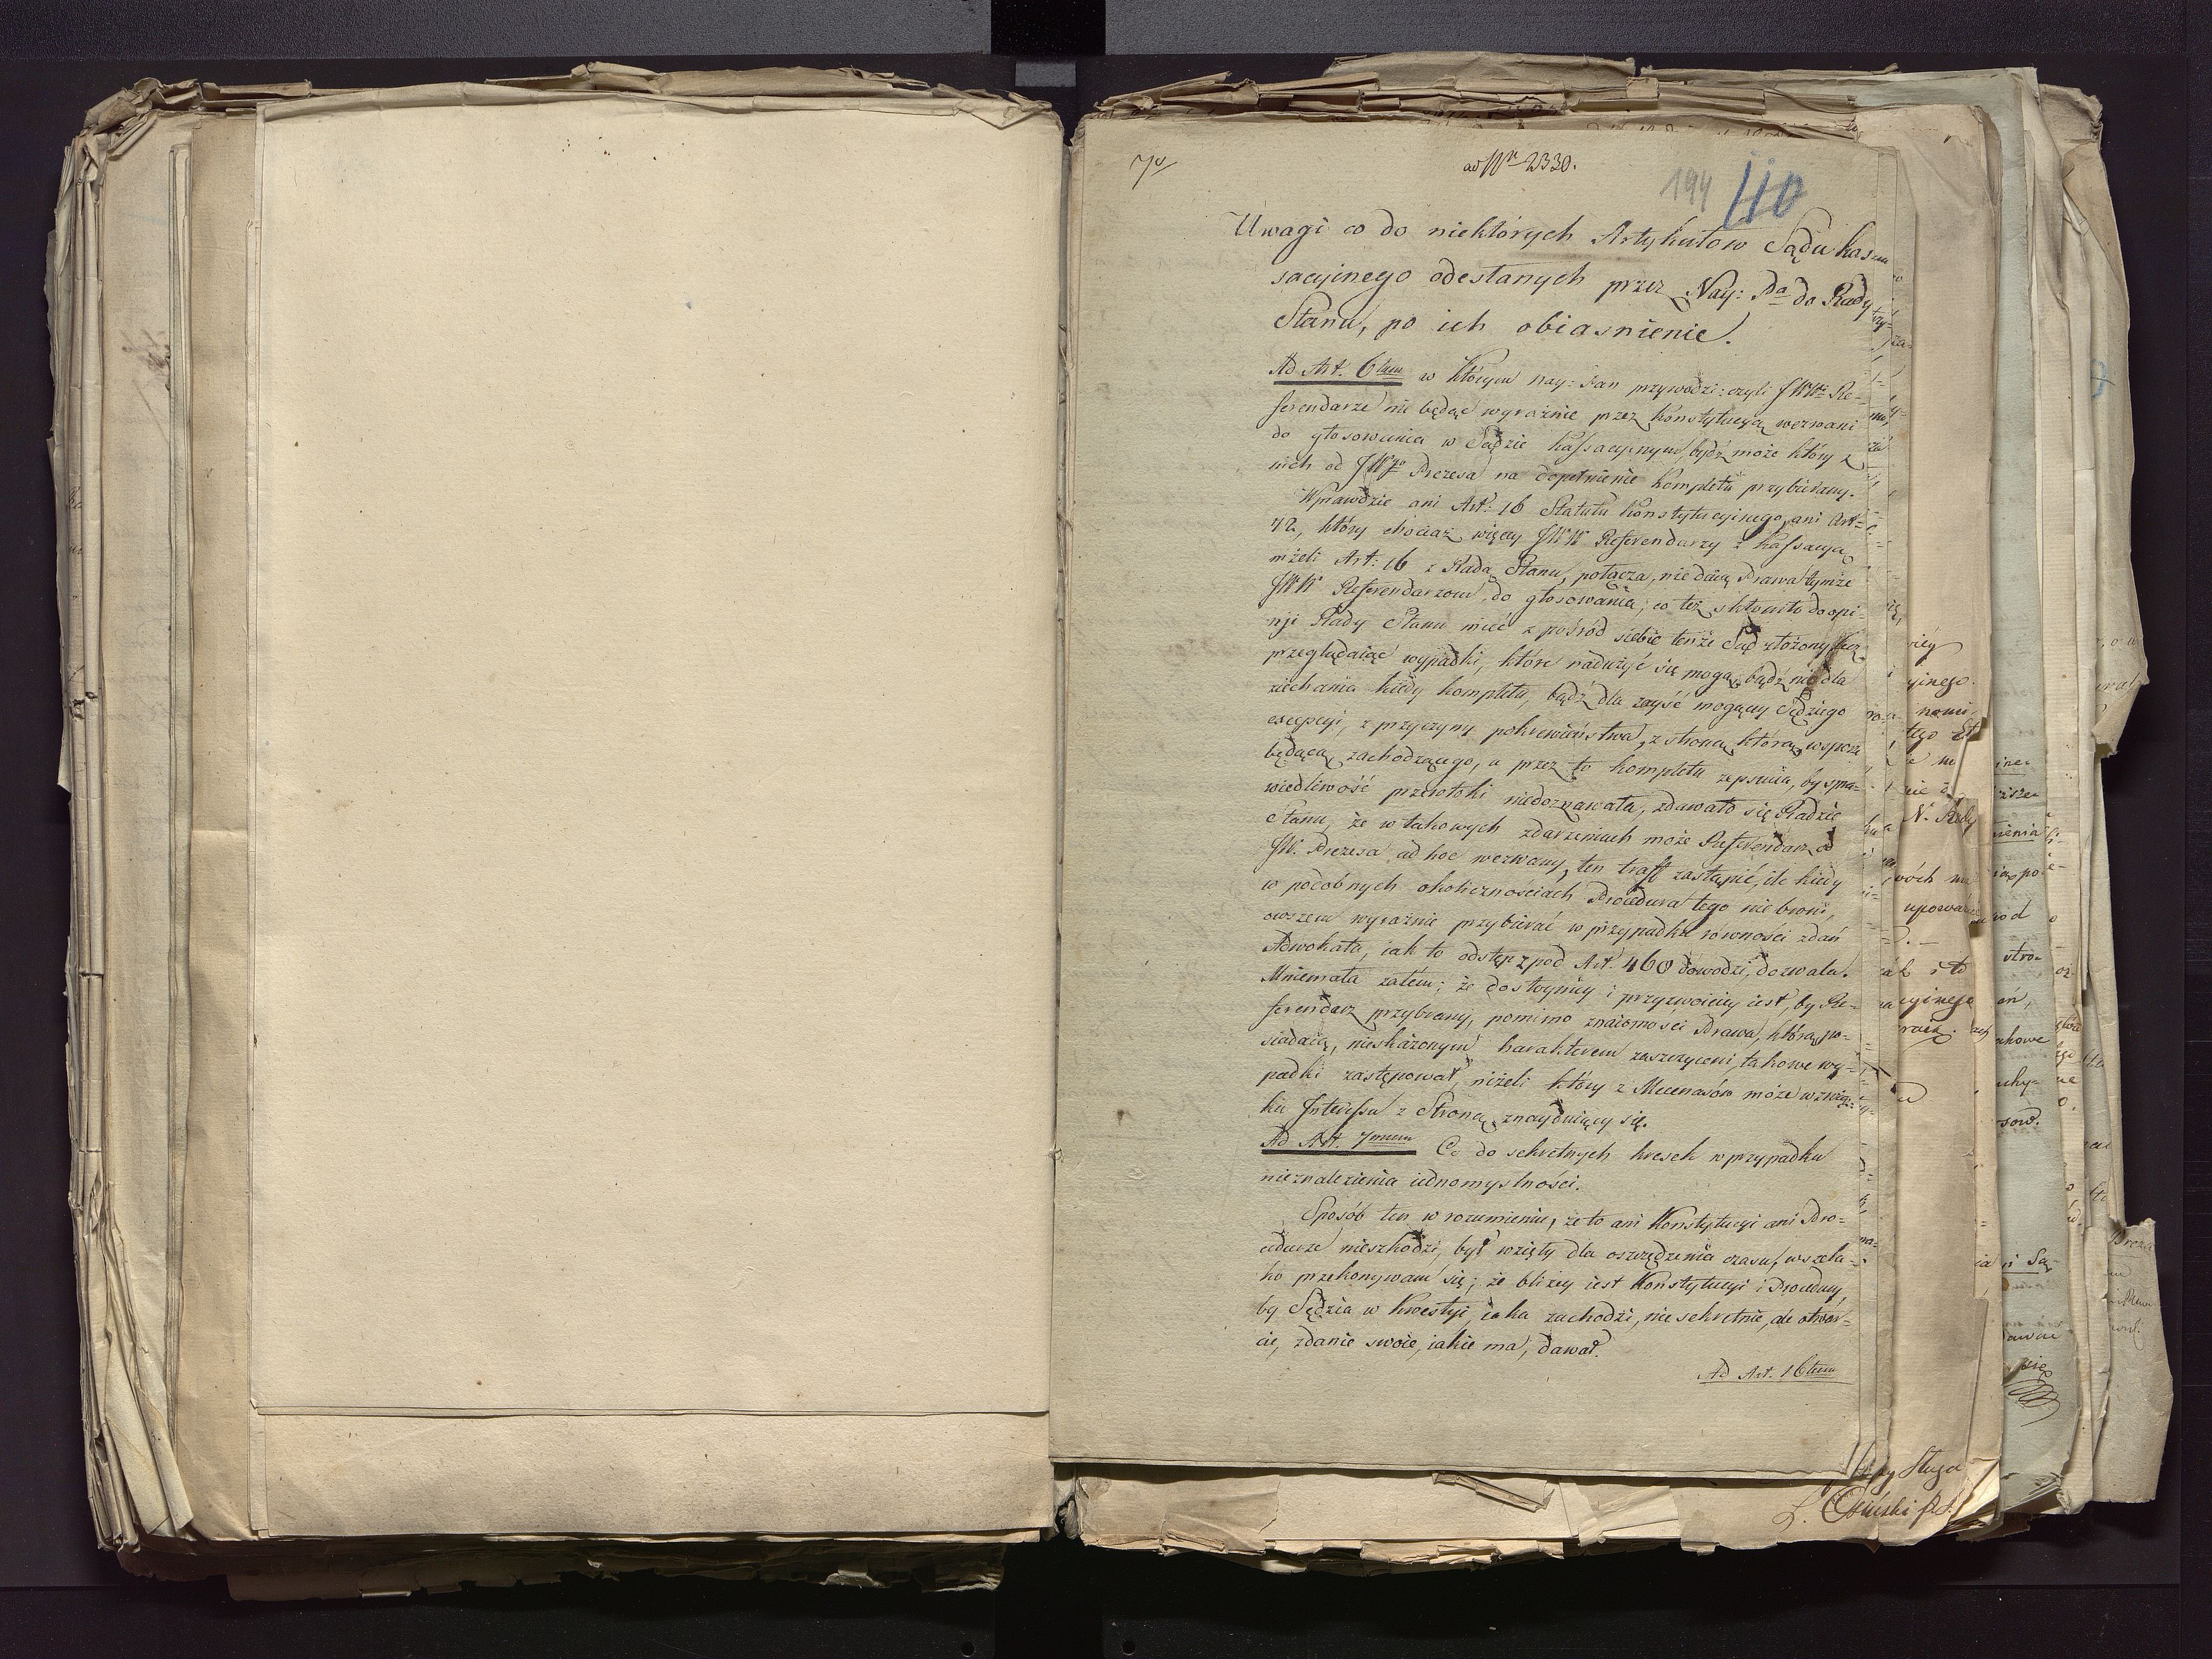 ad Nr 2330.
194 110
Uwagi co do niektórych Artykułow Sądu kas
sacyinego odesłanych przez Nay: Pa do Rady
Stanu, po ich obiasnienie.
Ad Art. 6tum w którym nay: Pan przywodzi: czyli JWWni Re-
ferendarze nie będąc wyraźnie przez konstytucyą wezwani
do głosowania w Sądzie kassacyinym, bydź może który z
nich od JWgo Prezesa na dopełnienie kompletu przybierany.
Wprawdzie ani Art: 16 Statutu Konstytucyinego, ani Art-
72, który chociaż więcey JWW Referendarzy z kassacyą
niżeli Art: 16 z Radą Stanu, połącza, nie daią Prawa tymże
JWW Referendarzom do głosowania; co też skłoniło do opi-
nji Rady Stanu mieć z pośród siebie tenże Sąd złożony lecz
przeglądaiąc wypadki, które nadużyć się mogą, bądź nie dla
ziechania kiedy kompletu, bądź dla zayść mogący Sędziego
excepcyi, z przyczyny pokrewieństwa, z stroną, która w sporze
będącą, zachodzącego, a przez to kompletu zepsucia, by spra-
wiedliwość przewłoki niedoznawała, zdawało się Radzie
Stanu, że w takowych zdarzeniach może Referendarz od
JW. Prezesa ad hoc wezwany, ten traff zastąpić, ile kiedy
w podobnych okolicznościach Procedura tego nie broni,
owszem wyraźnie przybierać w przypadku równości zdań
Adwokata, iak to odstęp z pod Art. 460 dowodzi, dozwala.
Mniemała zatem; że dostoyniey i przyzwoiciey iest, by Re-
ferendarz przybrany, pomimo znaiomości Prawa, którą po-
siadaią, nieskażonym harakterem zaszczyceni, takowe wy-
padki zastępował, niżeli który z Mecenasów może w związ-
ku Interessu z Stroną znayduiący się.
Ad Art. 7mum Co do sekretnych kresek w przypadku
nieznalezienia iednomyslności.
Sposób ten w rozumieniu, że to ani Konstytucyi ani Pro-
cedurze nieszkodzi, był wzięty dla oszczędzenia czasu, wszela-
ko przekonywam się; że bliżey iest Konstytucyi i Procedury,
by Sędzia w kwestyi, iaka zachodzi, nie sekretnie, ale otwar-
cie, zdanie swoie, iakie ma, dawał.
Ad Art. 16tum
Sługa
L. Osiński